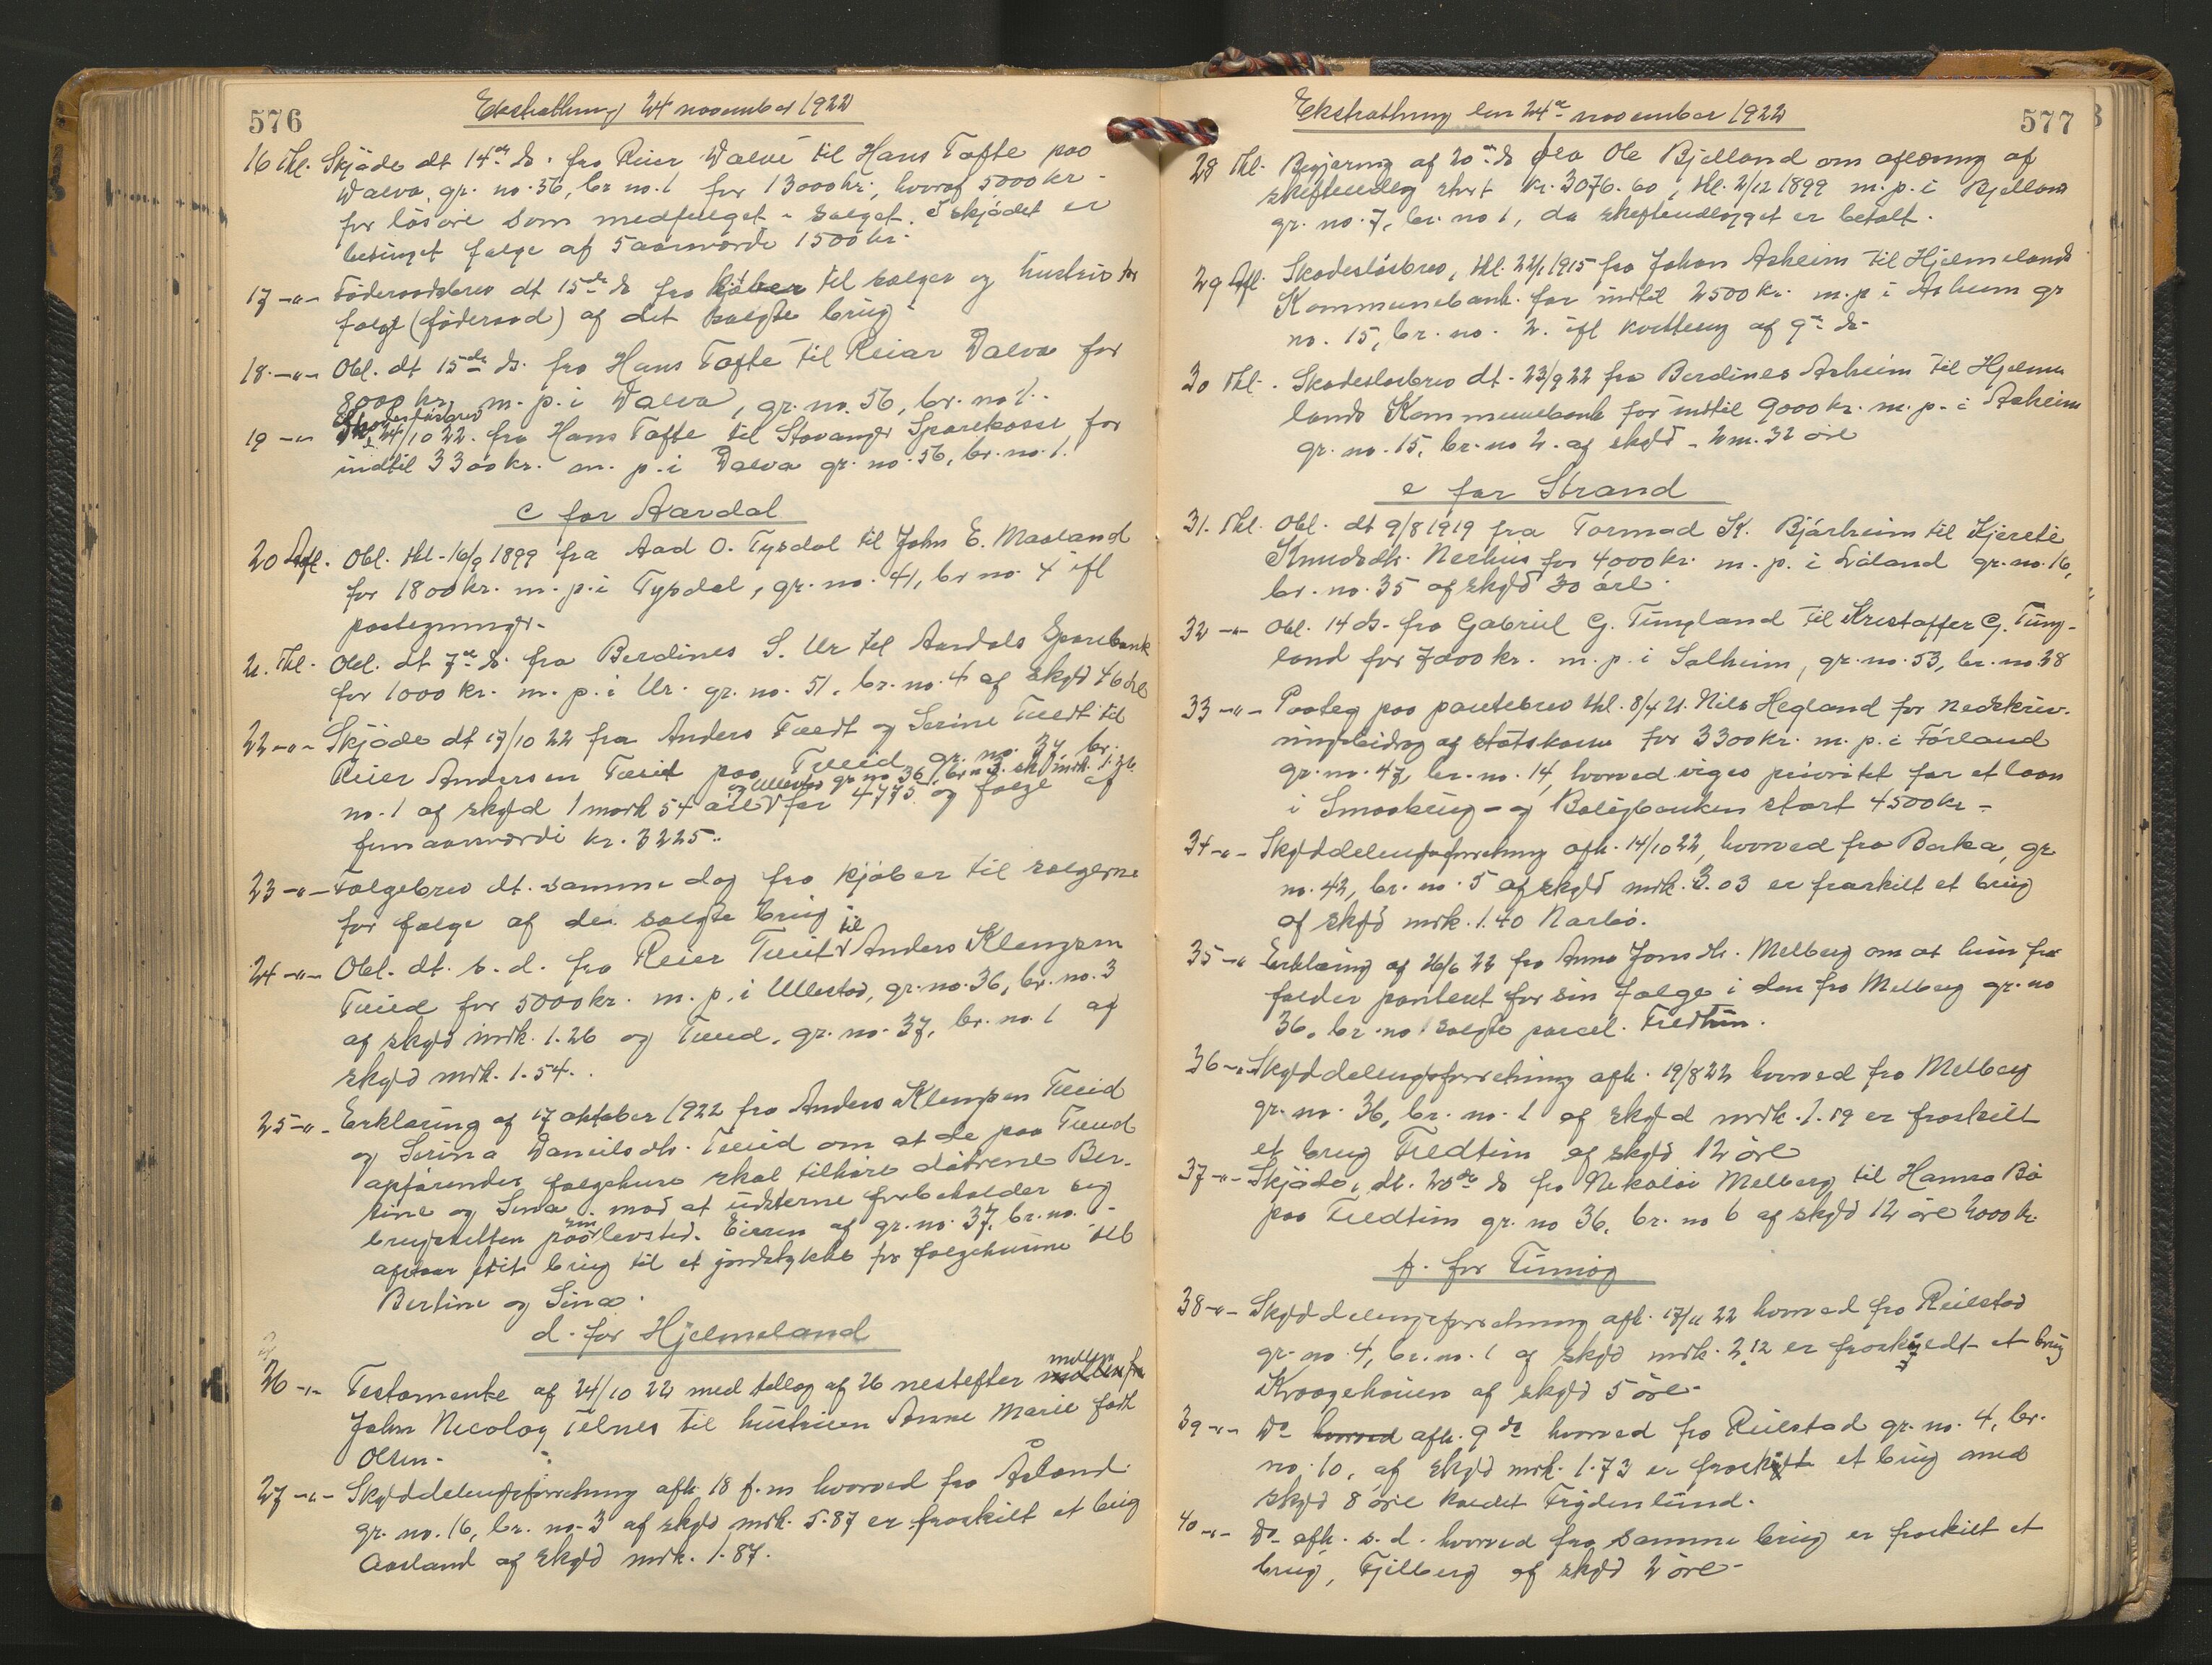 576
Ekstrathing 24 november 1922
16 thl. Skjöde dt 14de ds. fra Reier Valve til Hans Tofte paa
Valva, gr. no. 56, br no. 1 for 13000 kr., hvoraf 5000 kr.
for lösöre som medfulgt salget. I skjödet er
betinget folge af 5aarsværdi 1500 kr.
17 -"- Föderaadsbrev dt 15de ds fra kjöber til sælger og hustrie for
folge (föderaad) af det solgte brug.
18. -"- Obl. dt 15de ds. fra Hans Tofte til Reiar Valva for
8000 kr. m. p. i Valva, gr. no. 56, br. no 1.
19 -"- Skadeslösbrev 24/10 22. fra Hans Tofte til Stavanger Sparekasse for
indtil 3300 kr. m. p. i Valva gr. no. 56, br. no. 1.
c for Aardal
20 Afl. Obl. thl. 16/9 1899 fra Aad O. Tysdal til John E. Maaland
for 1800 kr. m. p. i Tysdal, gr. no. 41, br no. 4 ifl
paategninger.
21. Thl. Obl. dt 7de ds. fra Berdines S. Ur til Aardals Sparebank
for 1000 kr. m. p. i Ur. gr. no. 51, br. no. 4 af skyld 46 öre
22 -"- Skjöde dt 17/10 22 fra Anders Tveit og Serine Tveit til
Reier Andersen Tveit paa Tveid gr. no. 37, br.
og Ullestad gr no 36, br n 3. sk mrk. 1.26
no. 1 af skyld 1 mark 54 öre for 4775 og folge af
femaarsværdi kr. 3225.
23 -"- Folgebrev dt. samme dag fra kjöber til sælgerne
for folge af de solgte brug
24 -"- Obl. dt. s. d. fra Reier Tveit til Anders Klengsen
Tveid for 5000 kr. m. p. i Ullestad, gr. no. 36, br. no. 3
af skyld mrk. 1.26 og Tveid, gr. no. 37, br. no. 1 af
skyld mrk. 1.54.
25 -"- Erklæring af 17 oktober 1922 fra Anders Klengsen Tveid
og Serina Danielsdtr. Tveid om at de paa Tveid
opförendes folgehuse skal tilhöre döttrene Ber-
tine og Sina, mod at utstederne forbeholder sig
bruksretten paa sin levetid. Eieren af gr. no. 37, br. no. 1
afstaar frit brug til et jordstykke for folgehusene til
Bertine og Sina.
d. for Hjelmeland
26 -"- Testamente af 24/10 22 med tillæg af 26 nestefter mellem
John Nicolay Telnes til hustruen Anne Marie född
Olsen.
27 -"- Skylddelingsforretning afh. 18 f. m hvorved fra Åsland
gr. no. 16, br. no. 3 af skyld mrk. 5.87 er fraskilt et brug
Aasland af skyld mrk. 1.87.
577
Ekstrathing den 24de november 1922
28 thl. Begjæring af 20de ds fra Ole Bjelland om aflæsning af
skifteudlæg stort kr. 3076.60, thl. 2/12 1899 m. p. i Bjelland
gr. no. 7, br. no 1, da skifteudlægget er betalt.
29 Afl. Skadeslösbrev, thl. 22/1 1915 fra Johan Asheim til Hjelmelands
Kommunebank for indtil 2500 kr. m. p i Asheim gr
no. 15, br. no. 2. ifl kvittering af 9de ds.
30 thl. Skadeslösbrev dt. 23/9 22 fra Berdines Asheim til Hjelme
lands Kommunebank for indtil 9000 kr. m. p. i Asheim
gr. no. 15, br. no 2. af skyld 2 m. 32 öre
e for Strand
31. thl. Obl. dt 9/8 1919 fra Tormod K. Bjårheim til Kjersti
Knudsdtr. Nerhus for 4000 kr. m. p. i Låland gr. no. 16,
br. no. 35 af skyld 30 öre.
32 -"- Obl. 14 ds. fra Gabriel G. Tungland til Kristoffer G. Tung-
land for 7000 kr. m. p. i Solheim, gr. no. 53, br. no 38
33 -"- Paateg paa pantebrev thl. 8/4 21. Nils Hegland for nedskriv-
ningsbidrag af statskassen for 3300 kr. m. p. i Förland
gr. no. 47, br. no. 14, hvorved viges prioritet for et laan
i Smaabrug- og Boligbanken stort 4500 kr.
34 -"- Skylddelingsforretning afh. 14/10 22, hvorved fra Barka, gr
no. 42, br. no. 5 af skyld mrk. 3.03 er fraskilt et brug
af skyld mrk. 1.40 Narbö.
35 -"- Erklæring af 26/6 22 fra Anna Jonsdtr. Melberg om at hun fra
falder panteret for sin folge i den fra Melberg gr. no
36, br. no 1 solgte parcel. Fredtun.
36 -"- Skylddelingsforretning afh. 19/8 22 hvorved fra Melberg
gr. no. 36, br. no. 1 af skyld mrk. 1.19 er fraskilt
et brug Fredtun af skyld 12 öre
37 -"- Skjöde, dt. 20de ds fra Nikolai Melberg til Hanna Bö
paa Fredtun gr. no 36, br. no 6 af skyld 12 öre 2000 kr.
f. for Finnöy
38 -"- Skylddelingsforretning afh. 17/11 22 hvorved fra Reilstad
gr. no 4, br. no. 1 af skyld mrk. 2.12 er fraskyldt et brug
Kraagehauen af skyld 5 öre.
39 -"- Do hvorved afh. 9 ds hvorved fra Reilstad gr. no. 4, br.
no. 10, af skyld mrk. 1.73 er fraskylt et brug med
skyld 8 öre kaldet Frydenlund.
40 -"- Do afh. s. d. hvorved fra samme brug er fraskilt et
brug, Fjellberg af skyld 2 öre.